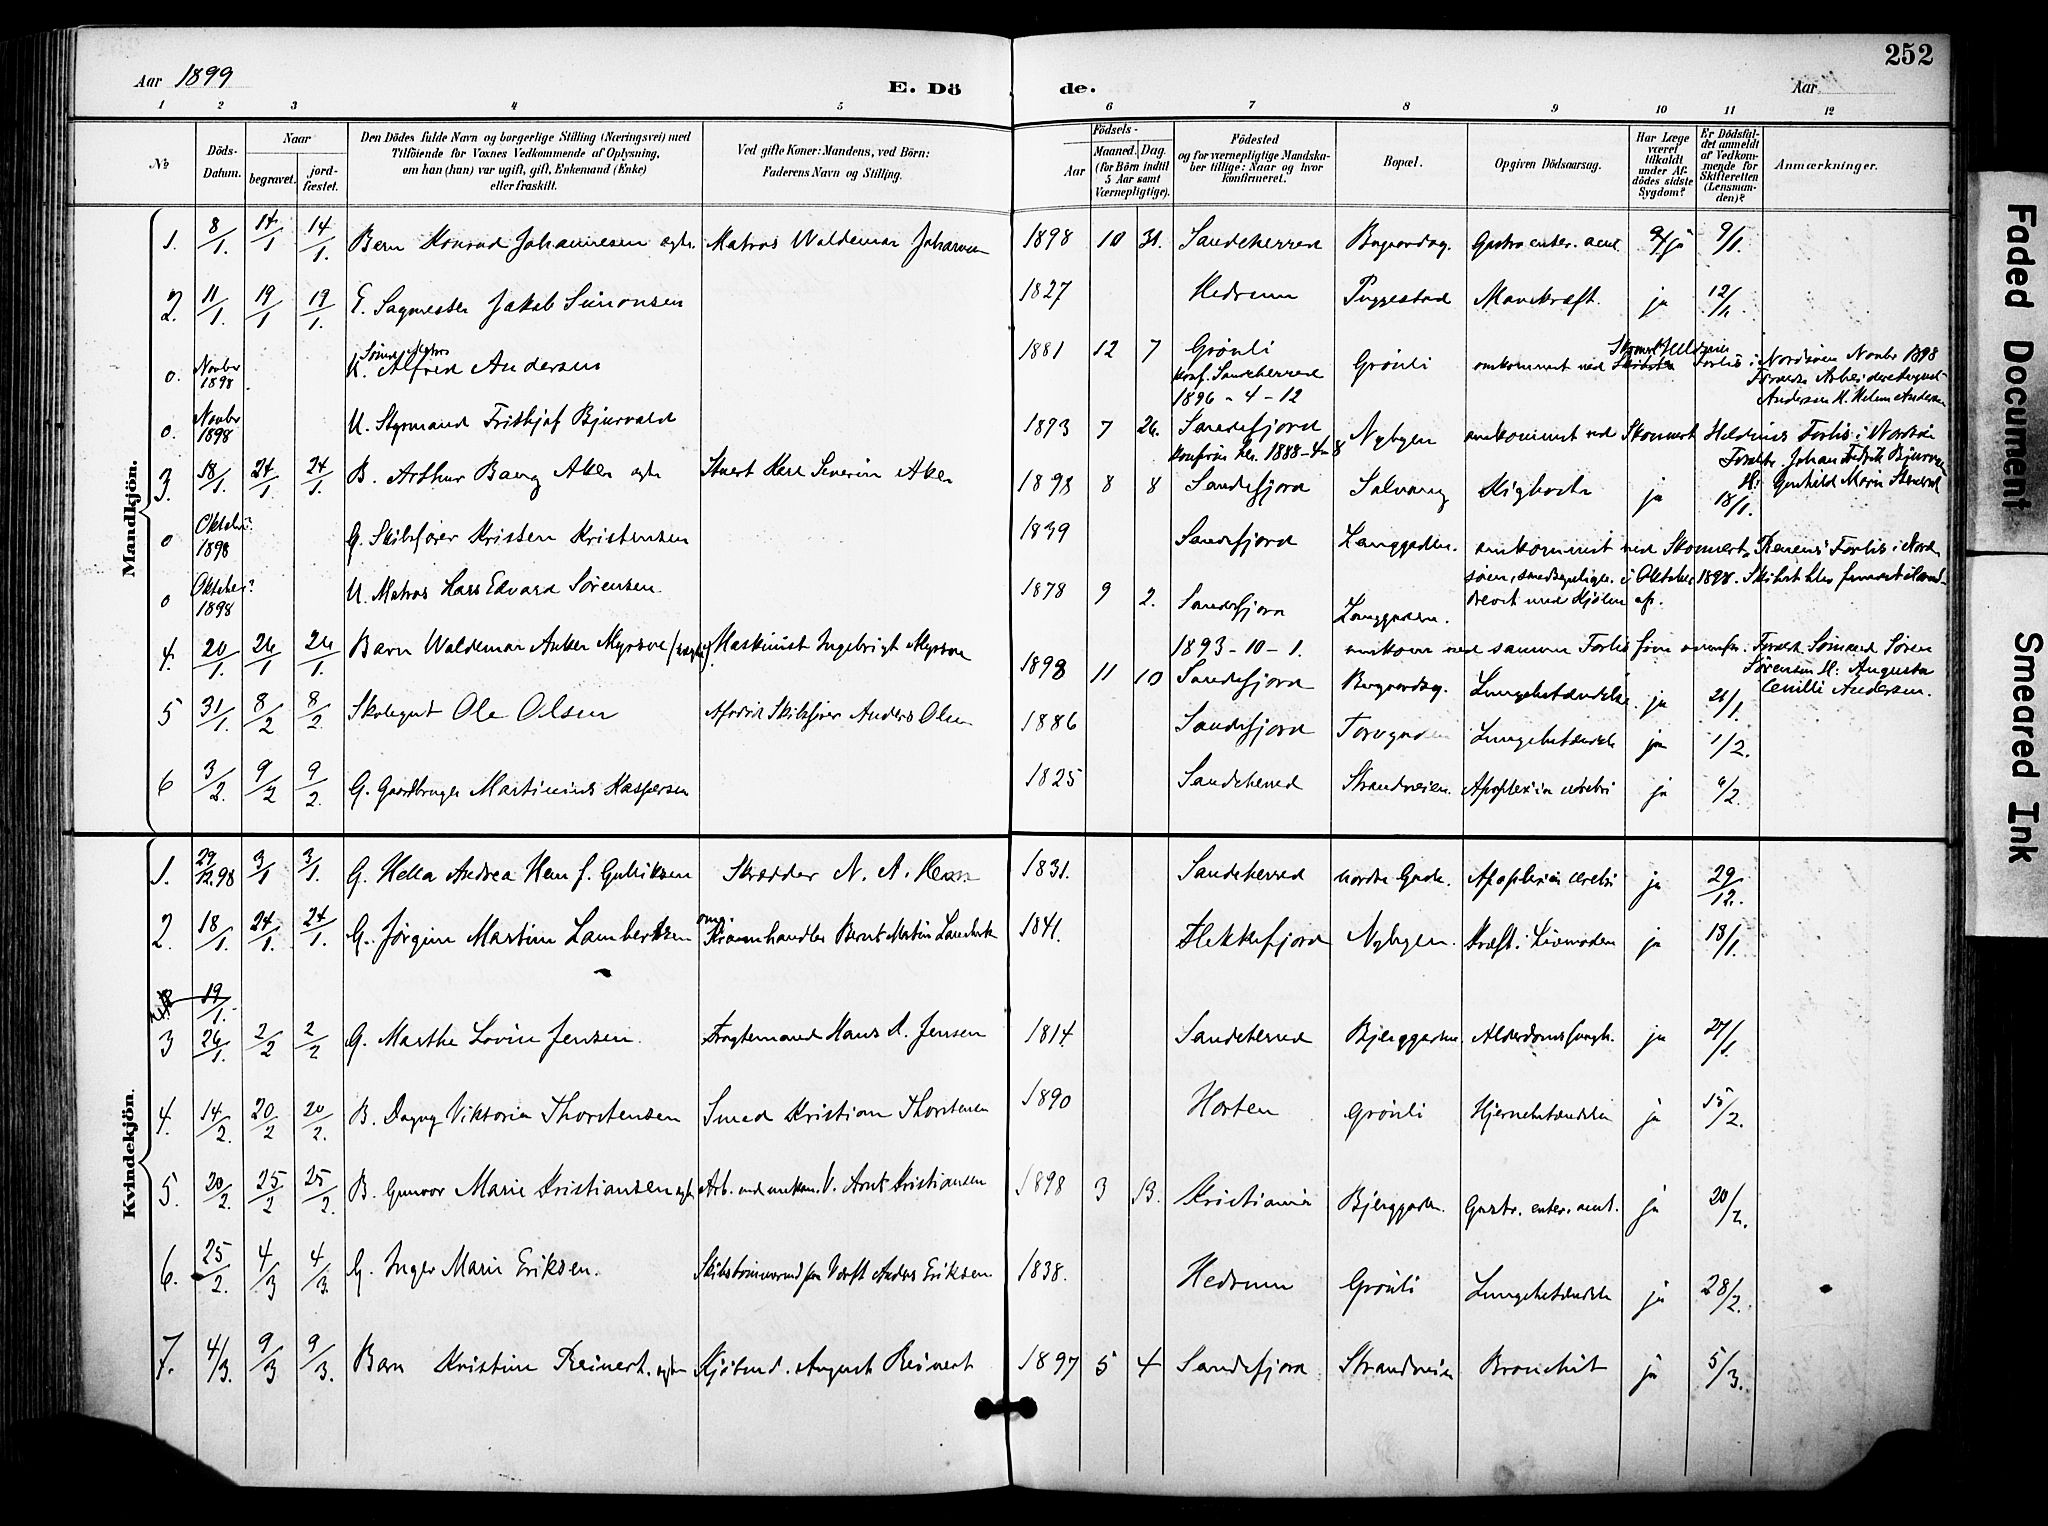 252
Aar 1899
E. Döde.
Aar
1 2 3 4 5 6 7 8 9 10 11 12
No
Döds-Datum.
Naar
begravet.
jord-fæstet.
Den Dödes fulde Navn og borgerlige Stilling (Næringsvei) med
Tilföiende for Voxnes Vedkommende af Oplysning,
om han (hun) var ugift, gift, Enkemand (Enke)
eller fraskilt.
Ved gifte Koner: Mandens, ved Börn:
Faderens Navn og Stilling.
Födsels-
Aar
Maaned. Dag.
(for Börn indtil
5 Aar samt
Værnepligtige).
Födested
og for værnepligtige Mandska-
ber tillige: Naar og hvor
konfirmeret.
Bopæl.
Opgiven Dödsaarsag.
Har Læge
været
tilkaldt
under Af-
dödes sidste
Sygdom?
Er Dödsfal-
det anmeldt
af Vedkom-
mende for
Skifteretten
(Lensman-
den)?
Anmærkninger.
Mandkjön.
1. 8/1. 14/1 14/1. Barn Konrad Johannesen ægte. Matros Waldemar 1898 10 31. Sandeherred Gastro enter. acut ja 9/1.
2. 11/1. 19/1 19/1. E. Sagmester Jakob Simonsen 1827 Hedrum Puggestad Mavekræft. ja 12/1.
0. Novbr 1898 U. Sömand Matros Alfred Andersen 1881 12 7 Grönli Grönli omkommet ved Skonnert Forlis i Nordsöen Novbr 1898
konf. Sandeherred
1896 - 4 - 12
Forældre Arbeider August
Andersen H. Helene Andersen
0. Novbr 1898 U. Styrmand Frithjof Bjurvald 1873 7 26. Sandefjord Nybyen omkommet ved Skonnert Heldines Forlis i Nordsöen
konfirm. her. 1888-4-8
3. 18/1. 24/1 24/1. B. Arthur Bang Aker ægte Stuert Karl Severin Aker 1898 8 8 Sandefjord Solvang Kighoste ja 18/1.
0 Oktober? 1898 G. Skibsförer Kristen Kristensen 1839 Sandefjord Langgaden. omkommet ved Skonnert Forlis i Nord-
söen, sandsynligvis i Oktober 1898. Skibet blev fundet
drevet med Kjölen op.
0 Oktober? 1898 U. Matros Hans Edvard Sörensen. 1878 9 2. Sandefjord Langgaden.
1893-10-1. omkom ved samme Forlis som ovenfor. Foreld. Sömand Sören
Sörensen H: Augusta
Cecilie Andersen.
4. 20/1. 26/1 26/1. Barn Waldemar Anker Myrvove (uægte) Maskinist Ingebrigt Myrvove 1898 11 10 Sandefjord Lungebetændelse ja 21/1.
5 31/1. 8/2 8/2 Skolegut Ole Olsen Afdöd Skibsförer Anders Olsen 1886 Sandefjord Torvgaden Lungebetændelse ja 1/2.
6 3/2. 9/2 9/2. G. Gaardbruger Martinius Kaspersen 1825 Sandeherred Strandveien. Apoplexia cerebri ja 6/2.
Kvindekjön.
1. 29/12.98 3/1 3/1. G. Andrea f. Guliksen Skrædder N. A. 1831. Sandeherred nordre Gade. Apoplexia cerebri ja 29/12.
2. 18/1. 24/1 24/1. G. Jörgine Martine Lambertsen Kramhandler Bernt Martin 1841. Flekkefjord Nybyen. Kræft i Livmoderen ja 18/1.
19/1.
3 26/1. 2/2 2/2 G. Marthe Lovise Jensen. Fragtemand Hans A. Jensen 1814. Sandeherred Bjerggaden. Alderdomssvagh. ja 27/1.
4. 14/2. 20/2 20/2. B. Dagny Viktoria Thorstensen Smed Kristian Thorstensen 1890 Horten Grönli Hjernebetændelse ja 15/2.
5. 20/2. 25/2 25/2. B. Gunvor Marie Kristiansen ægte Arb. V. Arnt Kristiansen 1898 3 13. Kristiania Bjerggaden. Gastr. enter. acut. ja 20/2.
6. 25/2. 4/3 4/3. G. Inger Marie Eriksen. Skibstömmermand paa Værft Anders Eriksen 1838. Hedrum Grönli Lungebetændelse ja 28/2.
7. 4/3. 9/3 9/3. Barn Kristine Reinert. ægte Sjömd. August Reinert 1897 5 4 Sandefjord. Strandveien Bronchit ja 5/3.
Faded Document
Smeared Ink